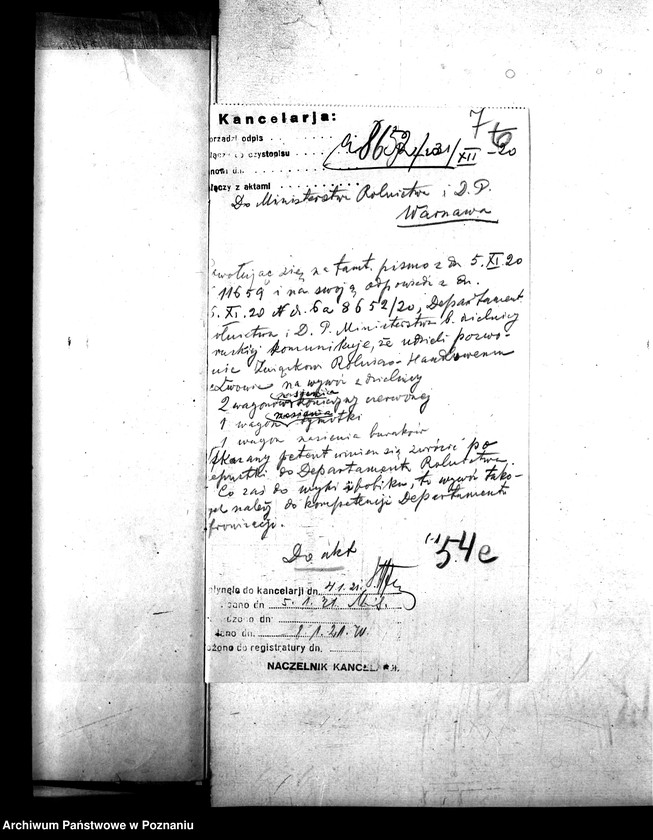 Kancelarja:
orządzi odpis . . . . . .
łączy do czystopisu . . . . . .
nowi dn. . . . . .
łączy z aktami . . . . . .
76
8652/20 21/XII -20
Do Ministerstwa Rolnictwa i D. P.
Warszawa
wołując się na tamt. pismo z dn 5.XI.20
11659 i na swoją odpowiedź z dn.
5. XI. 20 Nr. 6a 8652/20, Departament
olnictwa i D. P. Ministerstwa b. dzielnicy
pruskiej komunikuje, że udzieli pozwo-
nie Związkowi Rolniczo-Handlowemu
we Lwowie na wywóz z dzielnicy
2 wagonów nasienia koniczyny czerwonej
1 wagon nasienia tymotki
1 wagon nasienia buraków
skazany petent winien się zwrócić po
epustki do Departament. Rolnictwa.
Co zaś do wyki i bobiku, to wywóz tako-
należy do kompetencji Departamentu
Do akt
54e
płynęło do kancelarji dn. 4.1.21.
ano dn 5.1.21
czono dn.
ano dn. 1.21.
ożono do registratury dn.
NACZELNIK KANCELARJI.
Archiwum Państwowe w Poznaniu